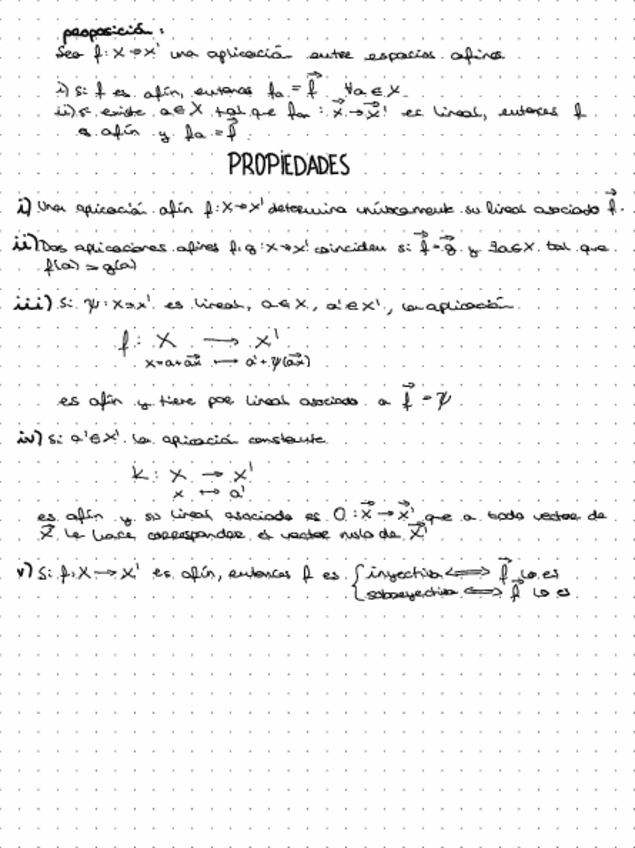 proposición:
Sea f: X → X' una aplicación entre espacios afines.
i) Si f es afín, entonces fa = f⃗ ∀a ∈ X.
ii) si existe a ∈ X tal que fa : X⃗ → X⃗' es lineal, entonces f
es afín y fa = f⃗.
PROPIEDADES
i) Una aplicación afín f: X → X' determina unívocamente su lineal asociado f⃗.
ii) Dos aplicaciones afines f, g: X → X' coinciden si f⃗ = g⃗ y ∃a ∈ X tal que
f(a) = g(a)
iii) Si ψ: X → X' es lineal, a ∈ X, a' ∈ X', la aplicación
f: X → X'
x = a + ax⃗ ↦ a' + ψ(ax⃗)
es afín y tiene por lineal asociado a f⃗ = ψ
iv) Si a' ∈ X' la aplicación constante
K: X → X'
x ↦ a'
es afín y su lineal asociado es 0: X⃗ → X⃗' que a todo vector de
X⃗ le hace corresponder el vector nulo de X⃗'
v) Si f: X → X' es afín, entonces f es { inyectiva ⟺ f⃗ lo es
sobreyectiva ⟺ f⃗ lo es